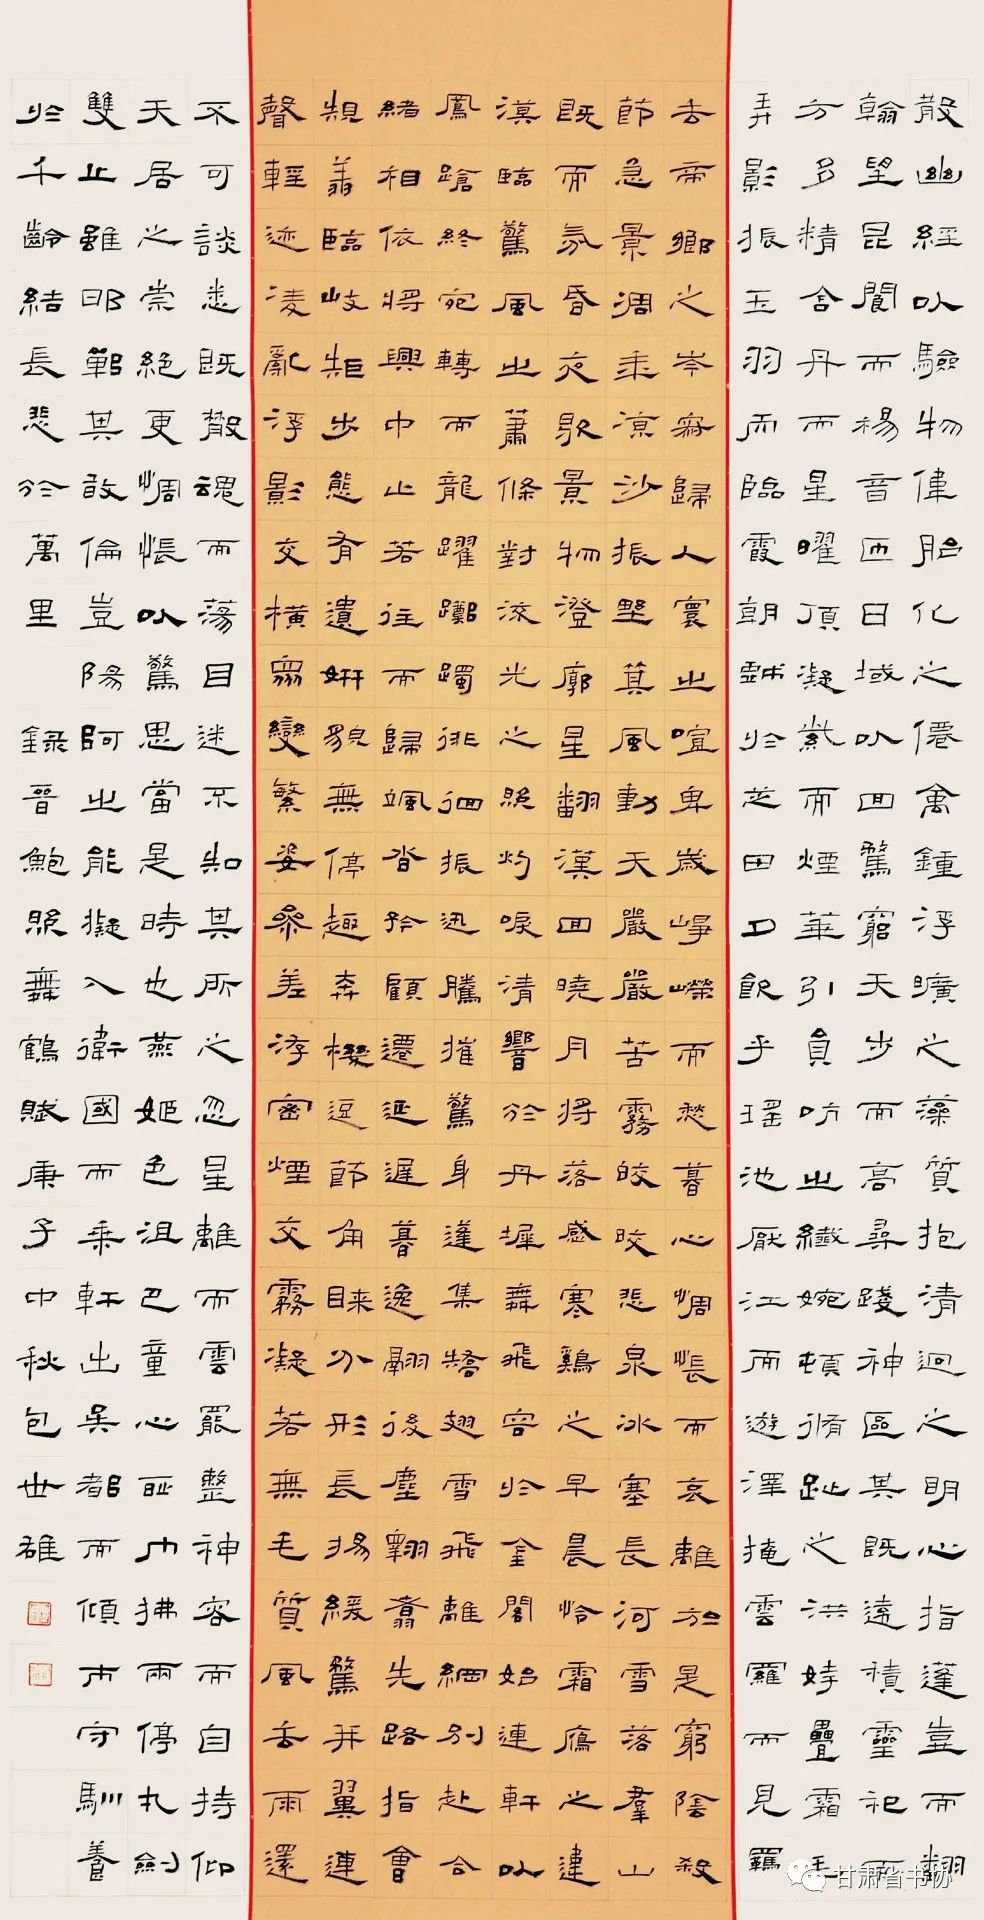 散幽經以驗物偉胎化之僊禽鍾浮曠之藻質抱清迥之明心指蓬壺而翻
翰望昆閬而揚音匝日域以回騖窮天步而高尋踐神區其既遠積靈祀而
方多精含丹而星曜頂凝紫而煙華引員吭之纖婉頓脩趾之洪姱疊霜毛
弄影振玉羽而臨霞朝戲於芝田夕飲乎瑤池厭江而遊澤掩雲羅而見羈
去帝鄉之岑寂歸人寰之喧卑歲崢嶸而愁暮心惆悵而哀離於是窮陰殺
節急景凋年涼沙振野箕風動天嚴嚴苦霧皎皎悲泉冰塞長河雪落羣山
既而氛昏夜歇景物澄廓星翻漢回曉月將落感寒鷄之早晨怜霜鴈之違
漠臨驚風之蕭條對流光之照灼唳清響於丹墀舞飛容於金閣始連軒以
鳳蹌終宛轉而龍躍躑躅徘徊振迅騰摧驚身蓬集矯翅雪飛離綱別赴合
緒相依將興中止若往而歸颯沓矜顧遷延遲暮逸翮後塵翱翥先路指會
規翔臨岐矩步態有遺妍貌無停趣奔機逗節角睞分形長揚緩騖並翼連
聲輕迹凌亂浮影交橫眾變繁姿參差洊密煙交霧凝若無毛質風去雨還
不可談悉既散魂而蕩目迷不知其所之忽星離而雲罷整神容而自持仰
天居之崇絕更惆悵以驚思當是時也燕姬色沮巴童心恥巾拂兩停丸劍
雙止雖邯鄲其敢倫豈陽阿之能擬入衛國而乘軒出吳都而傾市守馴養
於千齡結長悲於萬里 錄晉鮑照舞鶴賦庚子中秋包世雄
甘肃省书协